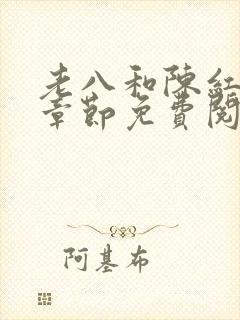 老八和陈红
章節免費閱
阿基布